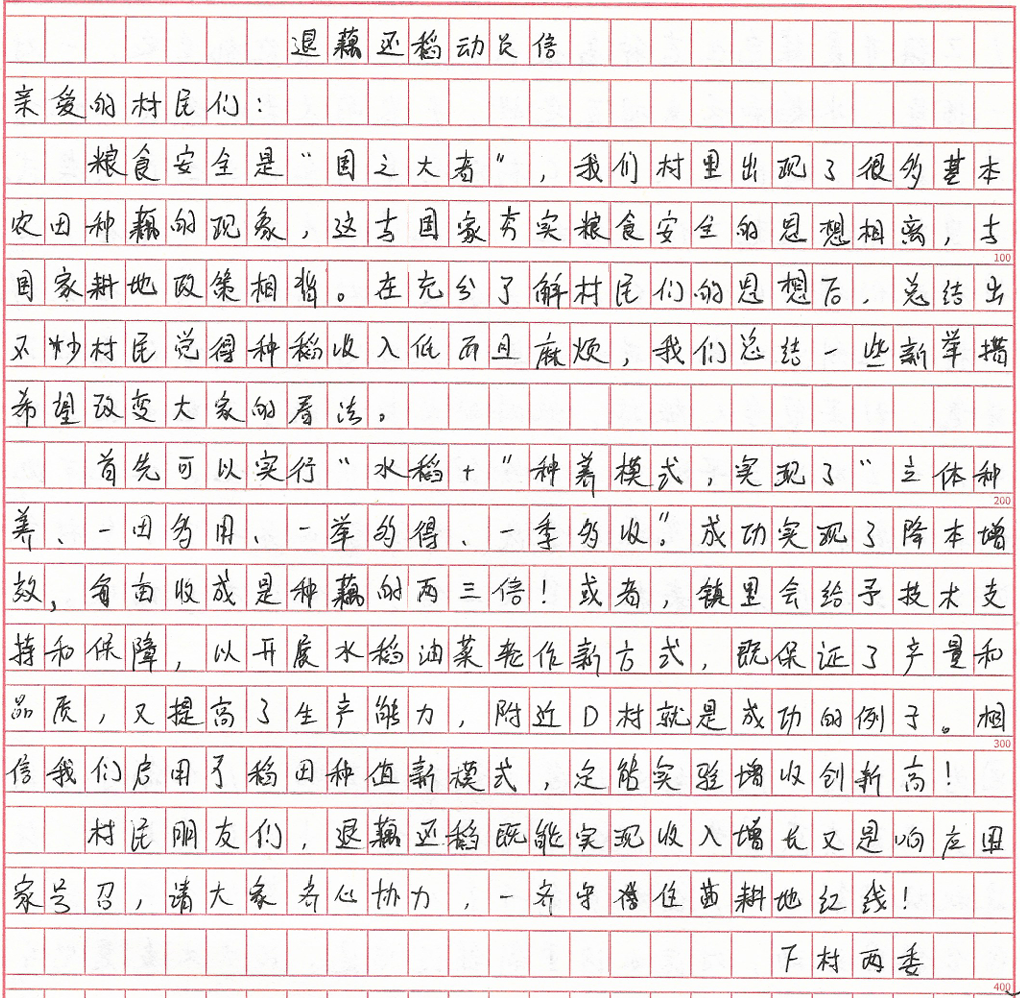 退藕还稻动员信
亲爱的村民们：
粮食安全是“国之大者”，我们村里出现了很多基本
农田种藕的现象，这与国家夯实粮食安全的思想相离，与
100
国家耕地政策相背。在充分了解村民们的思想后，总结出
不少村民觉得种稻收入低而且麻烦，我们总结一些新举措
希望改变大家的看法。
首先可以实行“水稻+”种养模式，实现了“立体种
200
养、一田多用、一举多得、一季多收”。成功实现了降本增
效，每亩收成是种藕的两三倍！或者，镇里会给予技术支
持和保障，以开展水稻油菜轮作新方式，既保证了产量和
品质，又提高了生产能力，附近D村就是成功的例子。相
300
信我们启用了稻田种值新模式，定能实验增收创新高！
村民朋友们，退藕还稻既能实现收入增长又是响应国
家号召，请大家齐心协力，一齐守住亩耕地红线！
下村两委
400